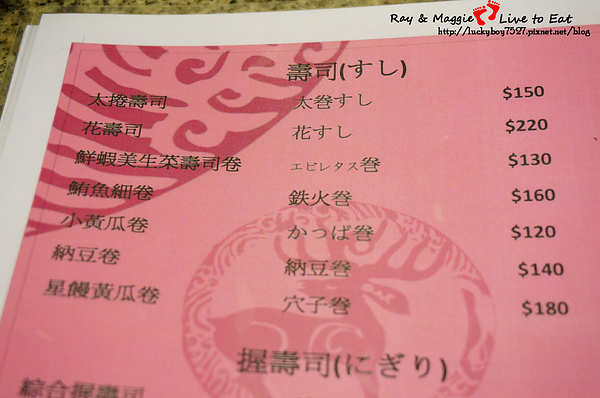 Ray & Maggie Live to Eat
http://luckyboy7527.pixnet.net/blog
壽司(すし)
太捲壽司 太巻すし $150
花壽司 花すし $220
鮮蝦美生菜壽司卷 エビレタス巻 $130
鮪魚細卷 鉄火巻 $160
小黃瓜卷 かっぱ巻 $120
納豆卷 納豆巻 $140
星饅黃瓜卷 穴子巻 $180
握壽司(にぎり)
綜合握壽司